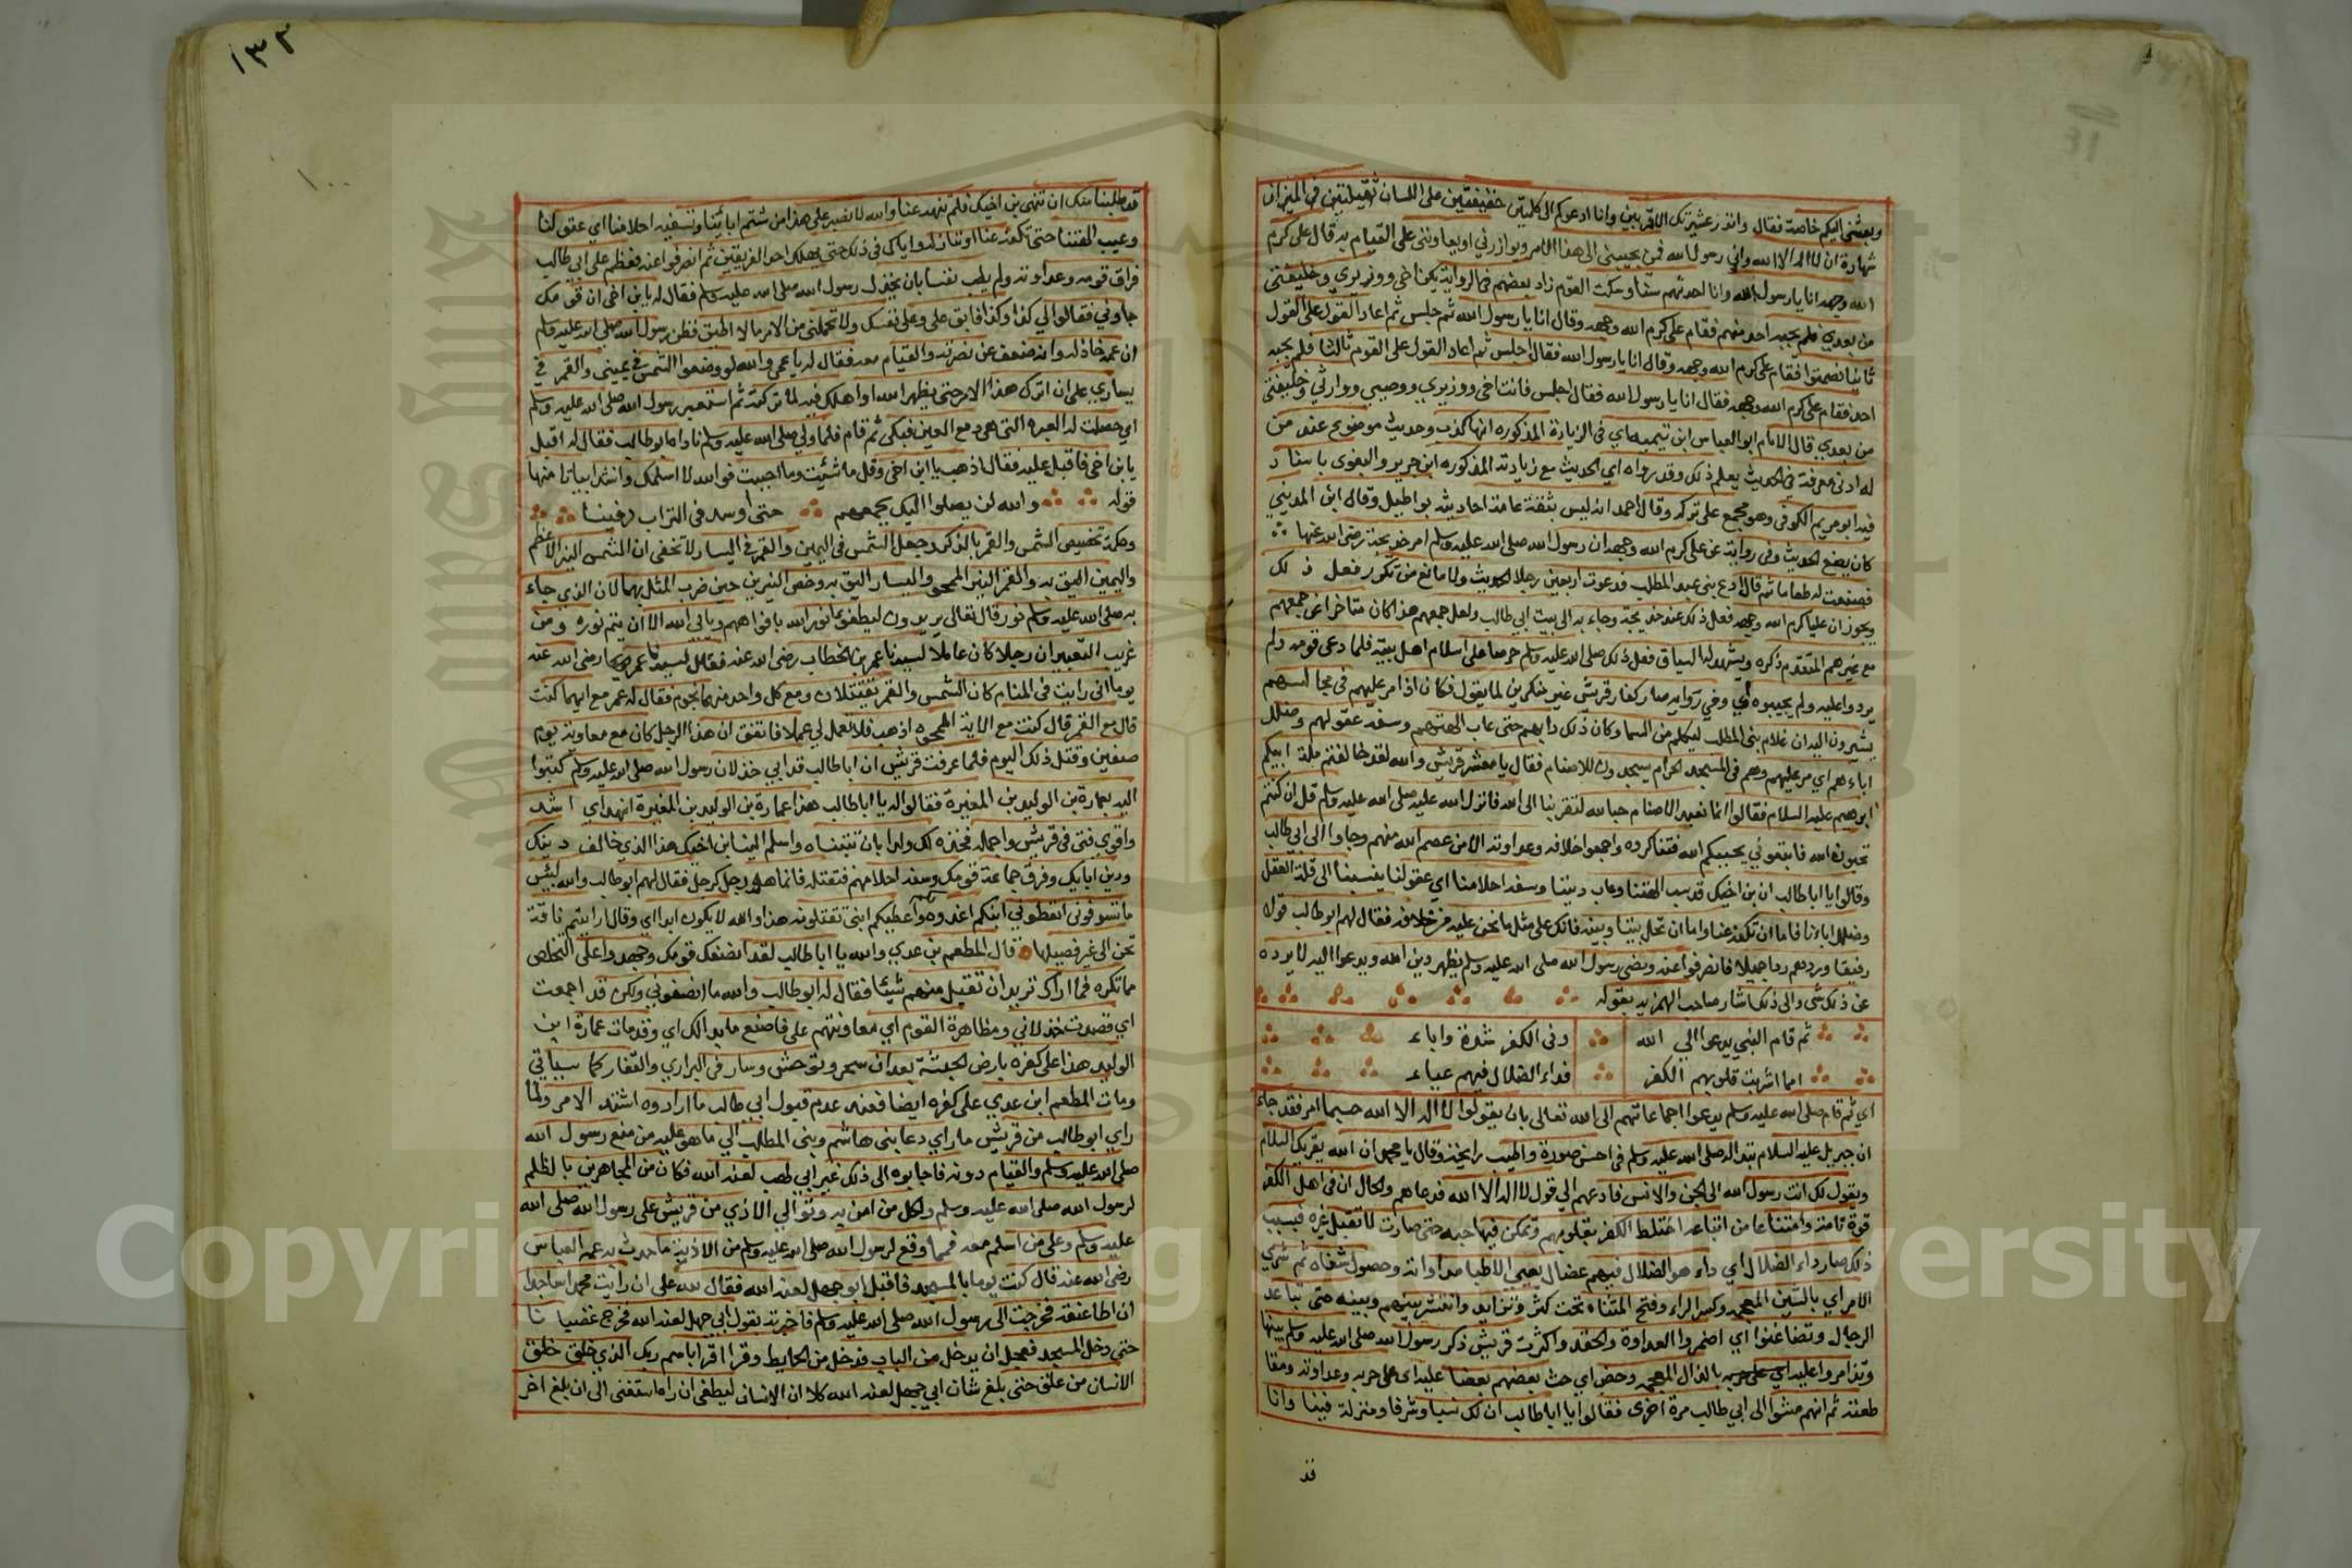 وبعثني اليكم خاصة فقال وانذر عشيرتك الاقربين وانا ادعوكم الى كلمتين خفيفتين على اللسان ثقيلتين في الميزان
شهادة ان لا اله الا الله واني رسول الله فمن يجيبني الى هذا الامر ويوازرني او يعاونني على القيام به قال على كرم
الله وجهه انا يا رسول الله وانا احدثهم سنا وسكت القوم زاد بعضهم في الرواية يكن اخي ووزيري وخليفتي
من بعدي فلم يجبه احد منهم فقام على كرم الله وجهه وقال انا يا رسول الله ثم جلس ثم اعاد القول على القول
ثانيا فصمتوا فقام على كرم الله وجهه وقال انا يا رسول الله فقال اجلس ثم اعاد القول على القوم ثالثا فلم يجبه
احد فقام على كرم الله وجهه فقال انا يا رسول الله فقال اجلس فانت اخي ووزيري ووصيي ووارثي وخليفتي
من بعدي قال الامام ابو العباس ابن تيمية اي في الزيادة المذكوره انها كذب وحديث موضوع عند من
له ادنى معرفة في الحديث يعلم ذلك وقد رواه اي الحديث مع زيادته المذكوره ابن جرير والبغوى باسناد
فيه ابو مريم الكوفي وهو مجمع على تركه وقال احمد انه ليس بثقة عامة احاديثه بواطيل وقال ابن المديني
كان يضع الحديث وفي رواية عن على كرم الله وجهه ان رسول الله صلى الله عليه وسلم امر خديجة رضى الله عنها
فصنعت له طعاما ثم قال ادع بني عبد المطلب فدعوت اربعين رجلا الحديث ولا مانع من تكرر فعل ذلك
ويجوز ان عليا كرم الله وجهه فعل ذلك عند خديجة وجاء به الى بيت ابي طالب ولعل جمعهم هذا كان متاخرا عن جمعهم
مع غيرهم المتقدم ذكره ويشهد له السياق فعل ذلك صلى الله عليه وسلم حرصا على اسلام اهل بيته فلما دعى قومه ولم
يردوا عليه ولم يجيبوه اي وفي رواية صار كفار قريش غير منكرين لما يقول فكان اذا مر عليهم في مجالسهم
يشيرون اليه ان غلام بني المطلب ليكلم من السما وكان ذلك دابهم حتى عاب الهتهم وسفه عقولهم وضلل
اباءهم اي مر عليهم وهم في المسجد الحرام يسجدون للاصنام فقال يا معشر قريش والله لقد خالفتم ملة ابيكم
ابرهيم عليه السلام فقالوا انما نعبد الاصنام حبا لله لتقربنا الى الله فانزل الله عليه صلى الله عليه وسلم قل ان كنتم
تحبون الله فاتبعوني يحببكم الله فتناكروه واجمعوا خلافه وعداوته الا من عصم الله منهم وجاوا الى ابي طالب
وقالوا يا ابا طالب ان بن اخيك قد سب الهتنا وعاب ديننا وسفه احلامنا اي عقولنا ينسبنا الى قلة العقل
وضلل اباءنا فاما ان تكفه عنا واما ان تخل بيننا وبينه فانك على مثل ما نحن عليه من خلافه فقال لهم ابو طالب قولا
رفيقا وردهم ردا جميلا فانصرفوا عنه ومضى رسول الله صلى الله عليه وسلم يظهر دين الله ويدعوا اليه لا يرده
عن ذلك شي والى ذلك اشار صاحب الهمزيه بقوله
ثم قام النبي يدعوا الى الله وفي الكفر شدة واباء
امما اشربت قلوبهم الكفر فداء الضلال فيهم عياء
اي ثم قام صلى الله عليه وسلم يدعوا جماعاتهم الى الله تعالى بان يقولوا لا اله الا الله حسبما امر فقد جاء
ان جبريل عليه السلام تبدا له صلى الله عليه وسلم في احسن صورة واطيب رايحة وقال يا محمد ان الله يقريك السلام
ويقول لك انت رسول الله الى الجن والانس فادعهم الى قول لا اله الا الله فدعاهم والحال ان في اهل الكفر
قوة تامة وامتناعا من اتباعه اختلط الكفر بقلوبهم وتمكن فيها حبه حتى صارت لا تقبل غيره فبسبب
ذلك صار داء الضلال اي داء هو الضلال فيهم عضال يعيي الاطبا مداواته وحصول شفاه ثم شري
الامر اي بالشين المعجمه وكسر الراء وفتح المثناه تحت كثر وتزايد وانتشر بينهم وبينه حتى تباعد
الرجال وتضاغنوا اي اضمروا العداوة والحقد واكثرت قريش ذكر رسول الله صلى الله عليه وسلم بينها
وتذامروا عليه اي على حربه بالذال المعجمه وحض اي حث بعضهم بعضا عليه اى على حربه وعداوته ومقا
طعته ثم انهم مشوا الى ابي طالب مرة اخرى فقالوا يا ابا طالب ان لك سنا وشرفا ومنزلة فينا وانا
قد
١٣٢
١٠٠
قد طلبنا منك ان تنهى بن اخيك فلم تنهه عنا وانا والله لا نصبر على هذا من شتم ابائنا وتسفيه احلامنا اي عقولنا
وعيب الهتنا حتى تكفه عنا او ننازله واياك في ذلك حتى يهلك احد الفريقين ثم انصرفوا عنه فعظم على ابي طالب
فراق قومه وعداوته ولم يطب نفسا بان يخذل رسول الله صلى الله عليه وسلم فقال له يا بن اخي ان قومك
جاوني فقالوا لي كذا وكذا فابق على وعلى نفسك ولا تحملني من الامر ما لا اطيق فظن رسول الله صلى الله عليه وسلم
ان عمه خاذله وانه ضعف عن نصرته والقيام معه فقال له يا عمى والله لو وضعوا الشمس في يميني والقمر في
يساري على ان اترك هذا الامر حتى يظهره الله او اهلك فيه لما تركته ثم استعبر رسول الله صلى الله عليه وسلم
اي حصلت له العبره التى هى دمع العين فبكى ثم قام فلما ولي صلى الله عليه وسلم ناداه ابو طالب فقال له اقبل
يا بن اخي فاقبل عليه فقال اذهب يا ابن اخي وقل ما شئيت وما احببت فوالله لا اسلمك وانشد ابياتا منها
قوله والله لن يصلوا اليك بجمعهم حتى اوسد في التراب دفينا
وحكمة تخصيص الشمس والقمر بالذكر وجعل الشمس في اليمين والقمر في اليسار لا تخفى ان الشمس النير الاعظم
واليمين اليق به والقمر النير الممحو واليسار اليق به وخص النيرين حين ضرب المثل بهما لان الذي جاء
به صلى الله عليه وسلم نور قال تعالى يريدون ليطفوا نور الله بافواههم ويابي الله الا ان يتم نوره ومن
غريب التعبير ان رجلا كان عاملا لسيدنا عمر بن الخطاب رضى الله عنه فقال لسيدنا عمر رضى الله عنه
يوما انى رايت في المنام كان الشمس والقمر يقتتلان ومع كل واحد منهما نجوم فقال له عمر مع ايهما كنت
قال مع القمر قال كنت مع الاية الممحوه اذهب فلا تعمل لي عملا فاتفق ان هذا الرجل كان مع معاوية يوم
صفين وقتل ذلك اليوم فلما عرفت قريش ان ابا طالب قد ابي خذلان رسول الله صلى الله عليه وسلم
اليه بعمارة بن الوليد بن المغيرة فقالوا له يا ابا طالب هذا عمارة بن الوليد بن المغيرة انهد اي اشد
واقوي فتى في قريش واجمله فخذه لك ولدا بان تتبناه واسلم الينا بن اخيك هذا الذي خالف دينك
ودين ابايك وفرق جماعة قومك وسفه احلامهم فنقتله فانما هو رجل كرجل فقال لهم ابو طالب والله لبئس
ما تسوموني اتعطوني ابنكم اغذوه واعطيكم ابني تقتلونه هذا والله لا يكون ابدا اي وقال ارايتم ناقة
تحن الى غير فصيلها قال المطعم بن عدي والله يا ابا طالب لقد انصفك قومك وجهدوا على التخلص
مما تكره فما اراك تريد ان تقبل منهم شيئا فقال له ابو طالب والله ما انصفوني ولكن قد اجمعت
اي قصدت خذلاني ومظاهرة القوم اي معاونتهم على فاصنع ما بدا لك اي وقد مات عمارة ابن
الوليد هذا على كفره بارض الحبشة بعد ان سحر وتوحش وسار في البراري والقفار كما سياتي
ومات المطعم ابن عدي على كفره ايضا فعند عدم قبول ابي طالب ما ارادوه اشتد الامر ولما
راي ابو طالب من قريش ما راي دعا بني هاشم وبني المطلب الي ما هو عليه من منع رسول الله
صلى الله عليه وسلم والقيام دونه فاجابوه الى ذلك غير ابي لهب لعنه الله فكان من المجاهرين بالظلم
لرسول الله صلى الله عليه وسلم ولكل من امن به وتوالي الاذي من قريش على رسول الله صلى الله
عليه وسلم وعلى من اسلم معه فمما وقع لرسول الله صلى الله عليه وسلم من الاذية ما حدث به عمه العباس
رضى الله عنه قال كنت يوما بالمسجد فاقبل ابو جهل لعنه الله فقال لله على ان رايت محمدا ساجدا
ان اطا عنقه فخرجت الى رسول الله صلى الله عليه وسلم فاخبرته بقول ابي جهل لعنه الله فخرج غضبانا
حتى دخل المسجد فعجل ان يدخل من الباب فدخل من الحايط وقرا اقرا باسم ربك الذي خلق خلق
الانسان من علق حتى بلغ شان ابي جهل لعنه الله كلا ان الانسان ليطغى ان راه استغنى الى ان بلغ اخر